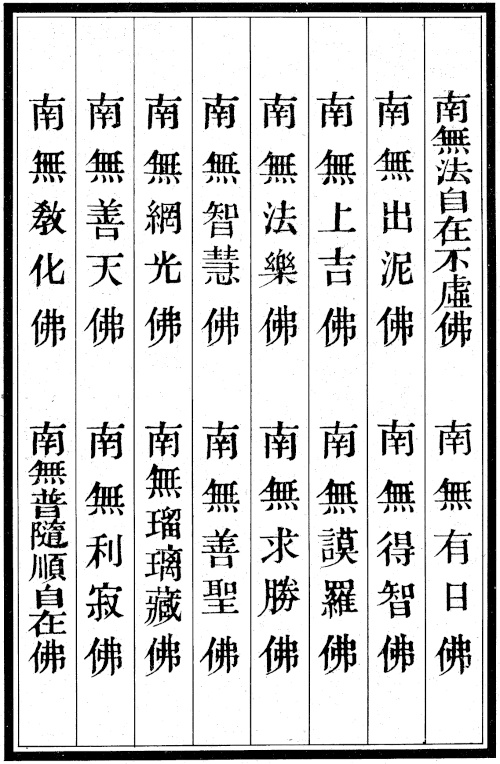 南無法自在不虛佛　南無有日佛
南無出泥佛　南無得智佛
南無上吉佛　南無謨羅佛
南無法樂佛　南無求勝佛
南無智慧佛　南無善聖佛
南無網光佛　南無瑠璃藏佛
南無善天佛　南無利寂佛
南無教化佛　南無普隨順自在佛